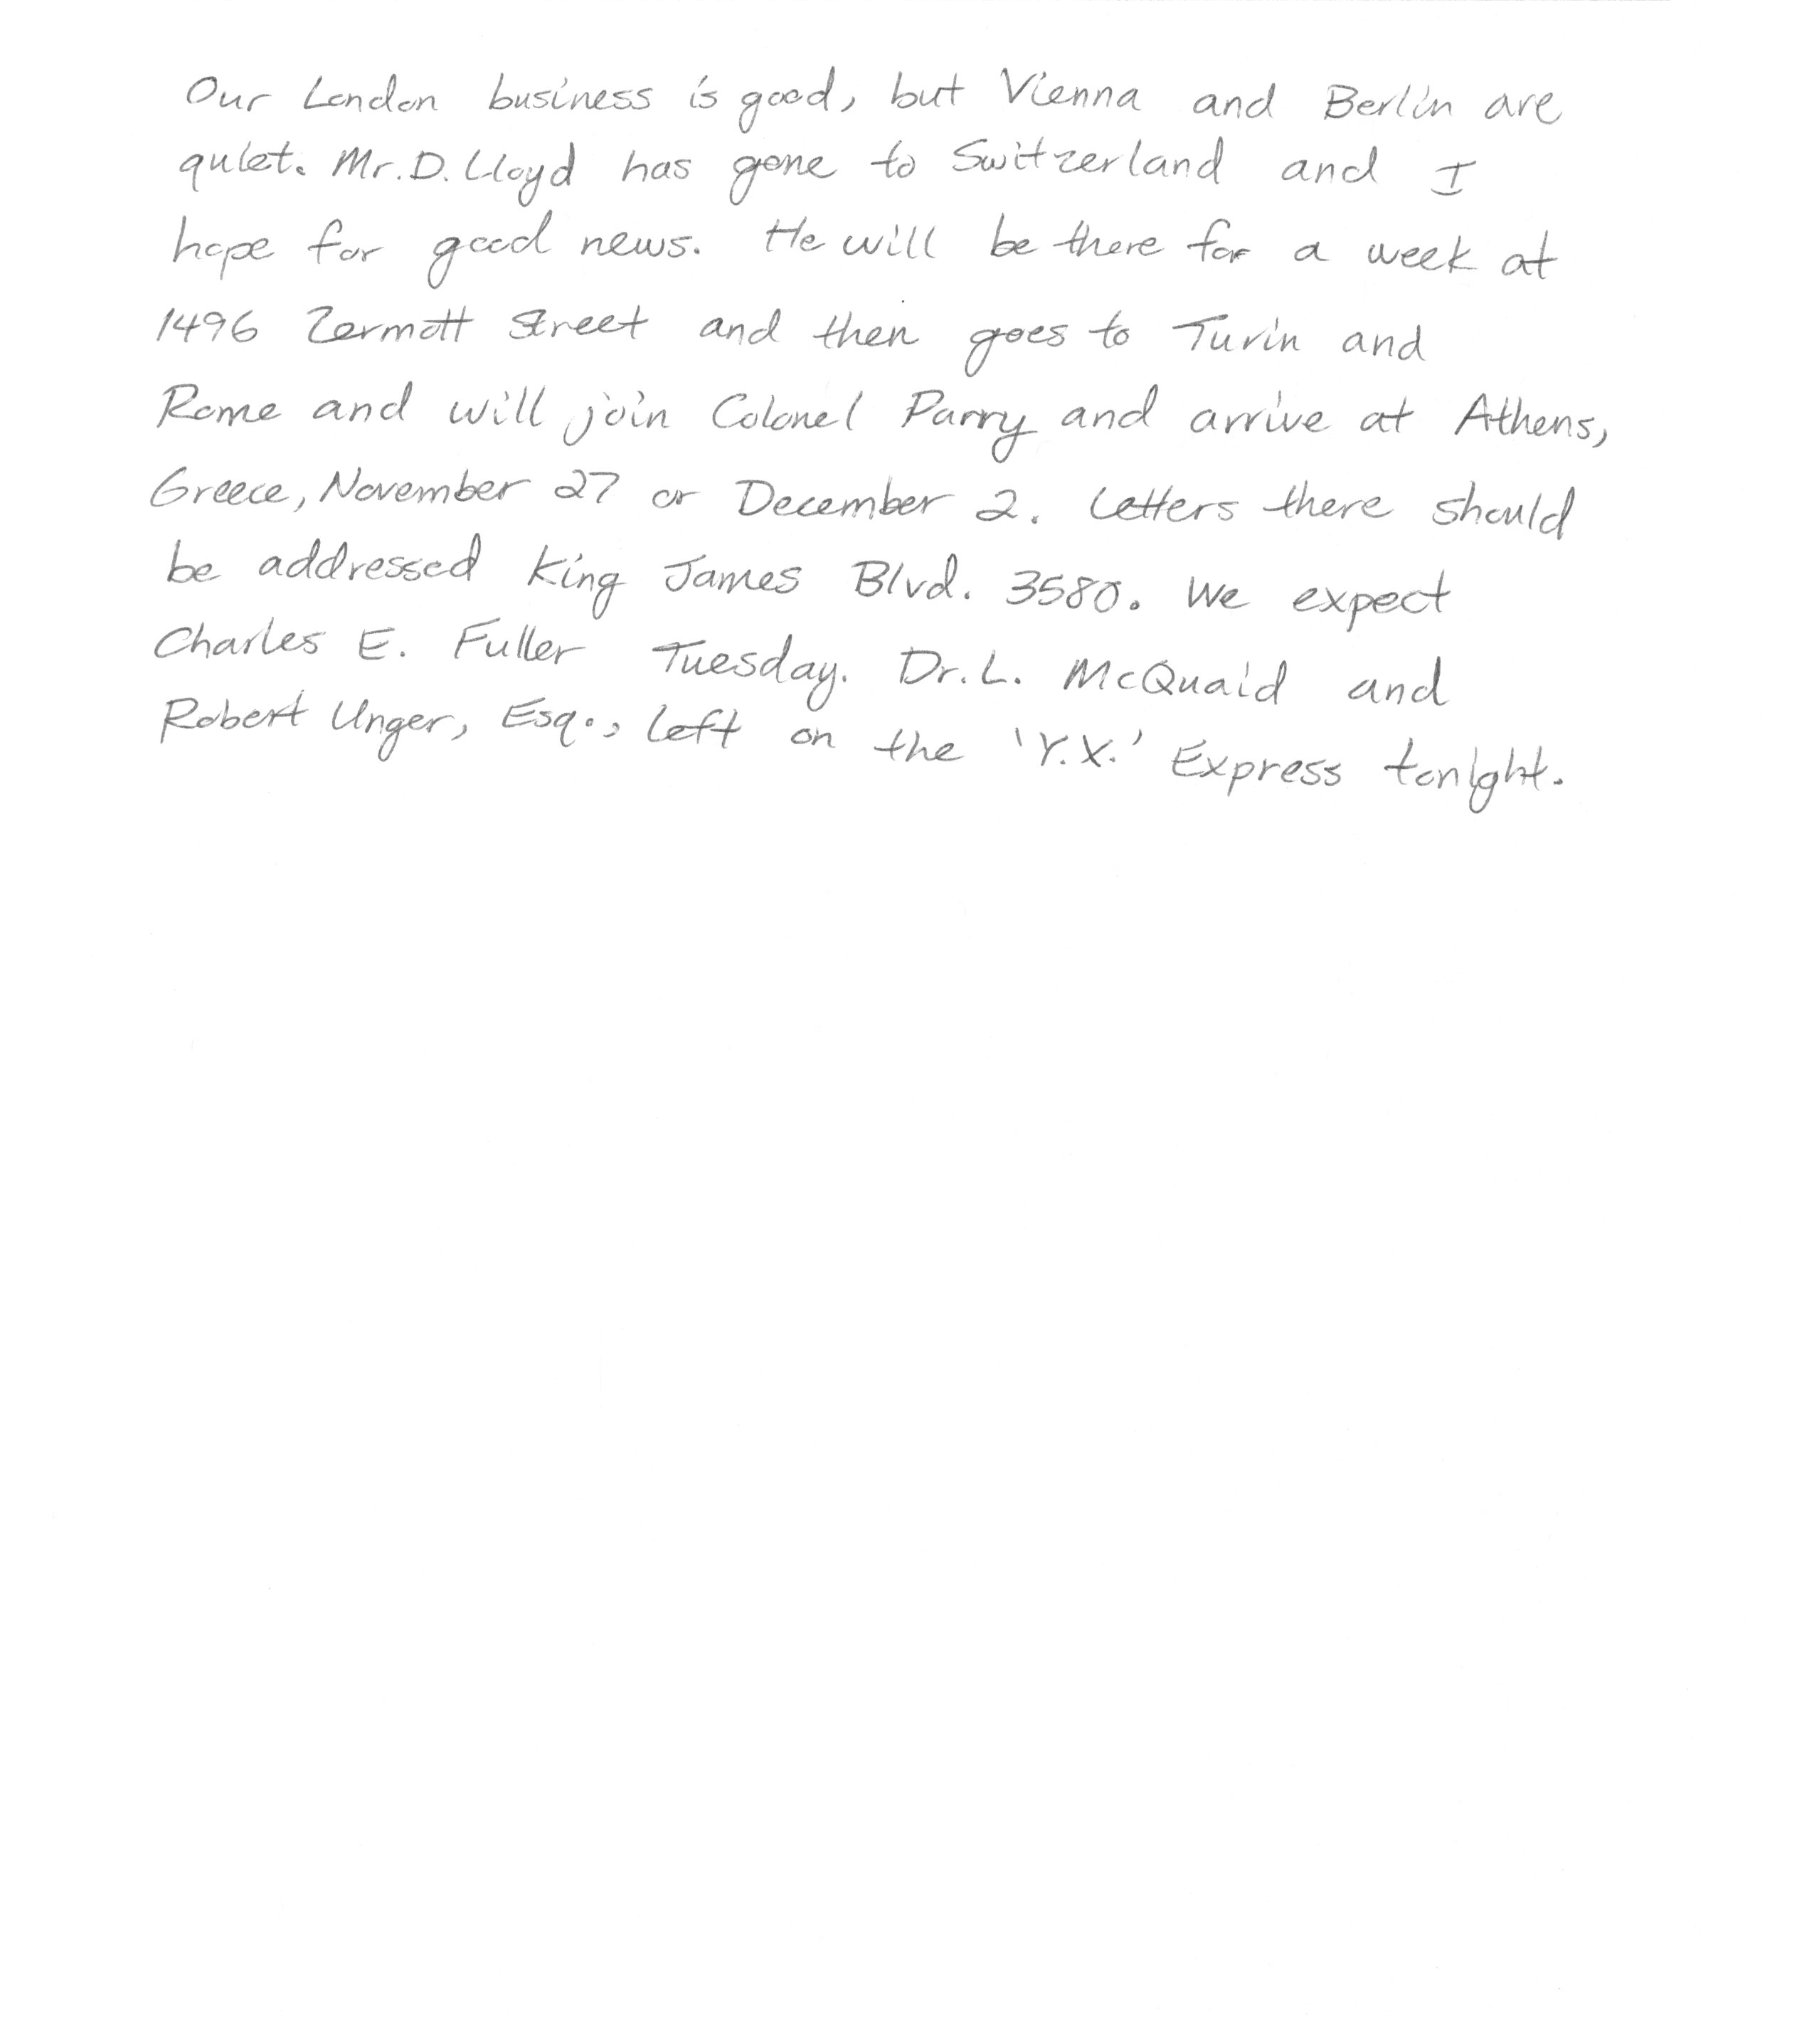 Our London business is good, but Vienna and Berlin are
quiet. Mr. D. Lloyd has gone to Switzerland and I
hope for good news. He will be there for a week at
1496 Zermott Street and then goes to Turin and
Rome and will join Colonel Parry and arrive at Athens,
Greece, November 27 or December 2. Letters there should
be addressed King James Blvd. 3580. We expect
Charles E. Fuller Tuesday. Dr. L. McQuaid and
Robert Unger, Esq., left on the 'Y.X.' Express tonight.